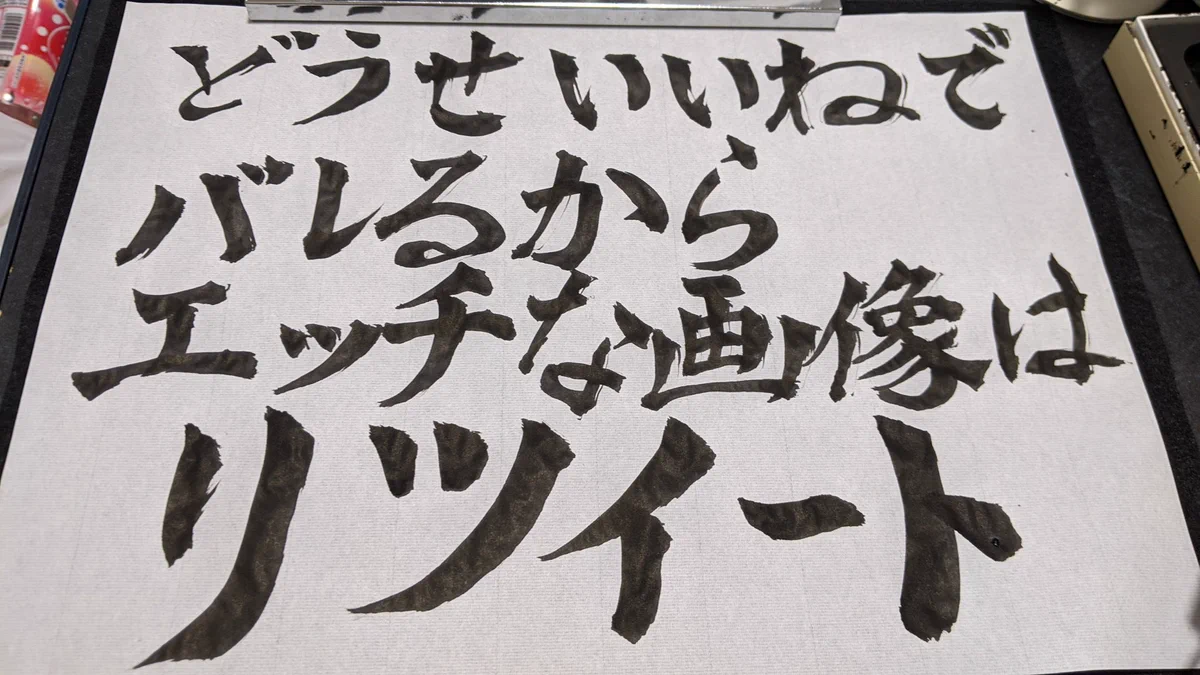 どうせいいねで
バレるから
エッチな画像は
リツイート